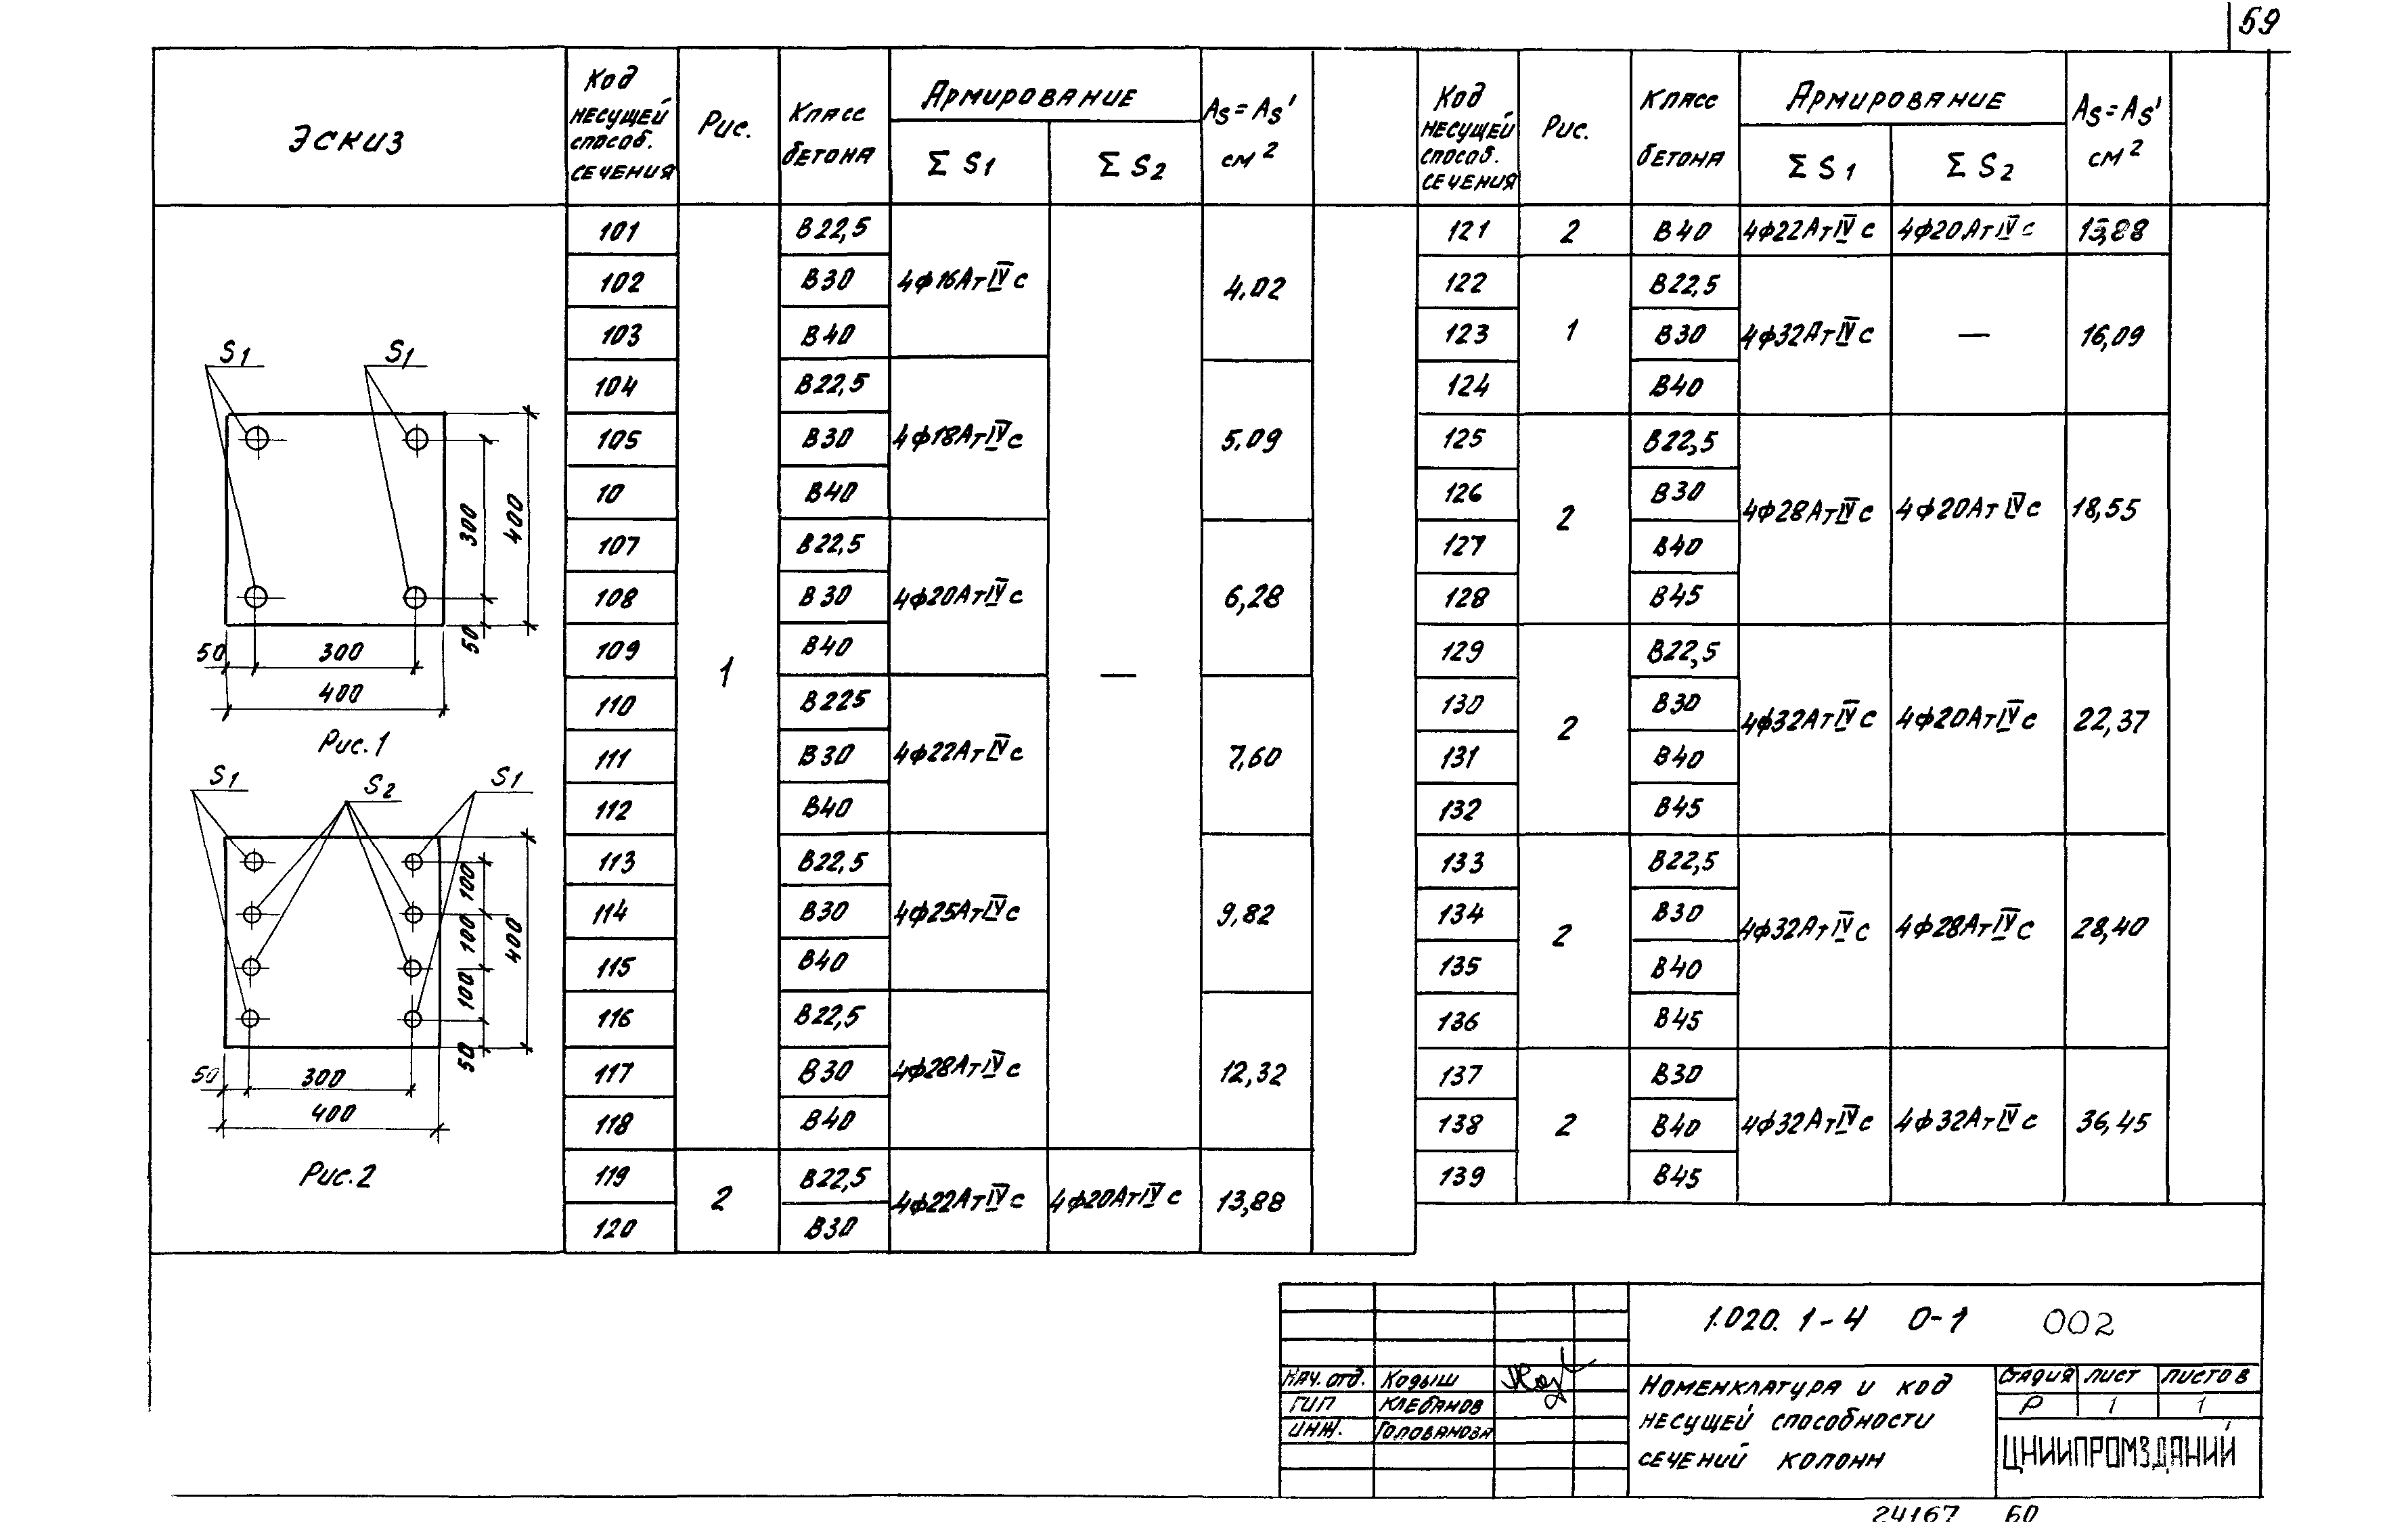 59
Эскиз
Код несущей способ. сечения
Рис.
Класс бетона
Армирование
Σ S1
Σ S2
As = As' см²
Код несущей способ. сечения
Рис.
Класс бетона
Армирование
Σ S1
Σ S2
As = As' см²
S1 S1
300
400
50
50 300
400
Рис. 1
S1 S2 S1
100
100
100
400
50
50 300
400
Рис. 2
101 1 В22,5 4ф16АтIVс — 4.02
102 В30
103 В40
104 В22,5 4ф18АтIVс 5.09
105 В30
10 В40
107 В22,5 4ф20АтIVс 6,28
108 В30
109 В40
110 В225 4ф22АтIVс 7,60
111 В30
112 В40
113 В22,5 4ф25АтIVс 9,82
114 В30
115 В40
116 В22,5 4ф28АтIVс 12,32
117 В30
118 В40
119 2 В22,5 4ф22АтIVс 4ф20АтIVс 13,88
120 В30
121 2 В40 4ф22АтIVс 4ф20АтIVс 13,88
122 1 В22,5 4ф32АтIVс — 16,09
123 В30
124 В40
125 2 В22,5 4ф28АтIVс 4ф20АтIVс 18,55
126 В30
127 В40
128 В45
129 2 В22,5 4ф32АтIVс 4ф20АтIVс 22,37
130 В30
131 В40
132 В45
133 2 В22,5 4ф32АтIVс 4ф28АтIVс 28,40
134 В30
135 В40
136 В45
137 2 В30 4ф32АтIVс 4ф32АтIVс 36,45
138 В40
139 В45
1.020.1-4 0-1 002
Нач. отд. Кодыш
ГИП Клебанов
Инж. Голованова
Номенклатура и код
несущей способности
сечений колонн
Стадия Лист Листов
Р 1 1
ЦНИИПРОМЗДАНИЙ
24167 60